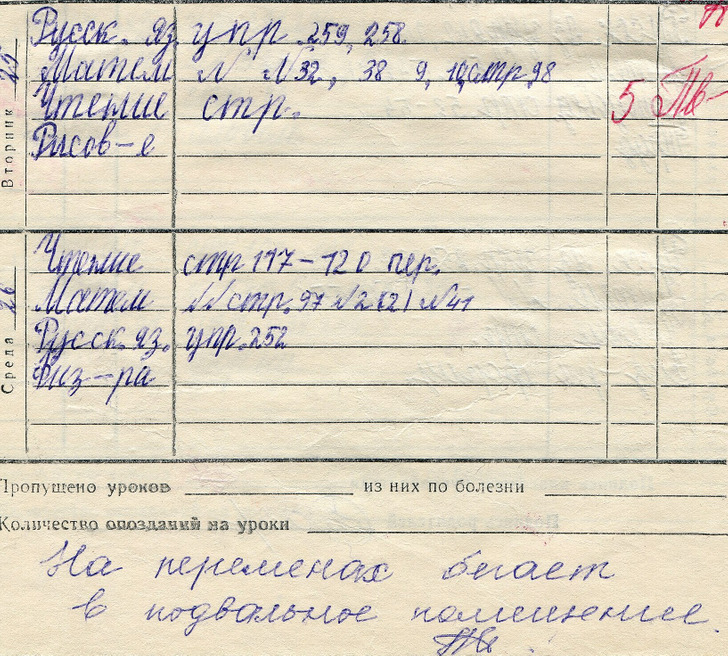 Вторник 25
Русск. яз. упр. 259, 258
Матем N N32, 38 9, 10 стр 98
Чтение стр. 5
Рисов-е
Среда 26
Чтение стр 117-120 пер.
Матем стр. 97 N2 (2) N41
Русск. яз. упр. 252
Физ-ра
Пропущено уроков из них по болезни
Количество опозданий на уроки
На переменах бегает
в подвальное помещение.